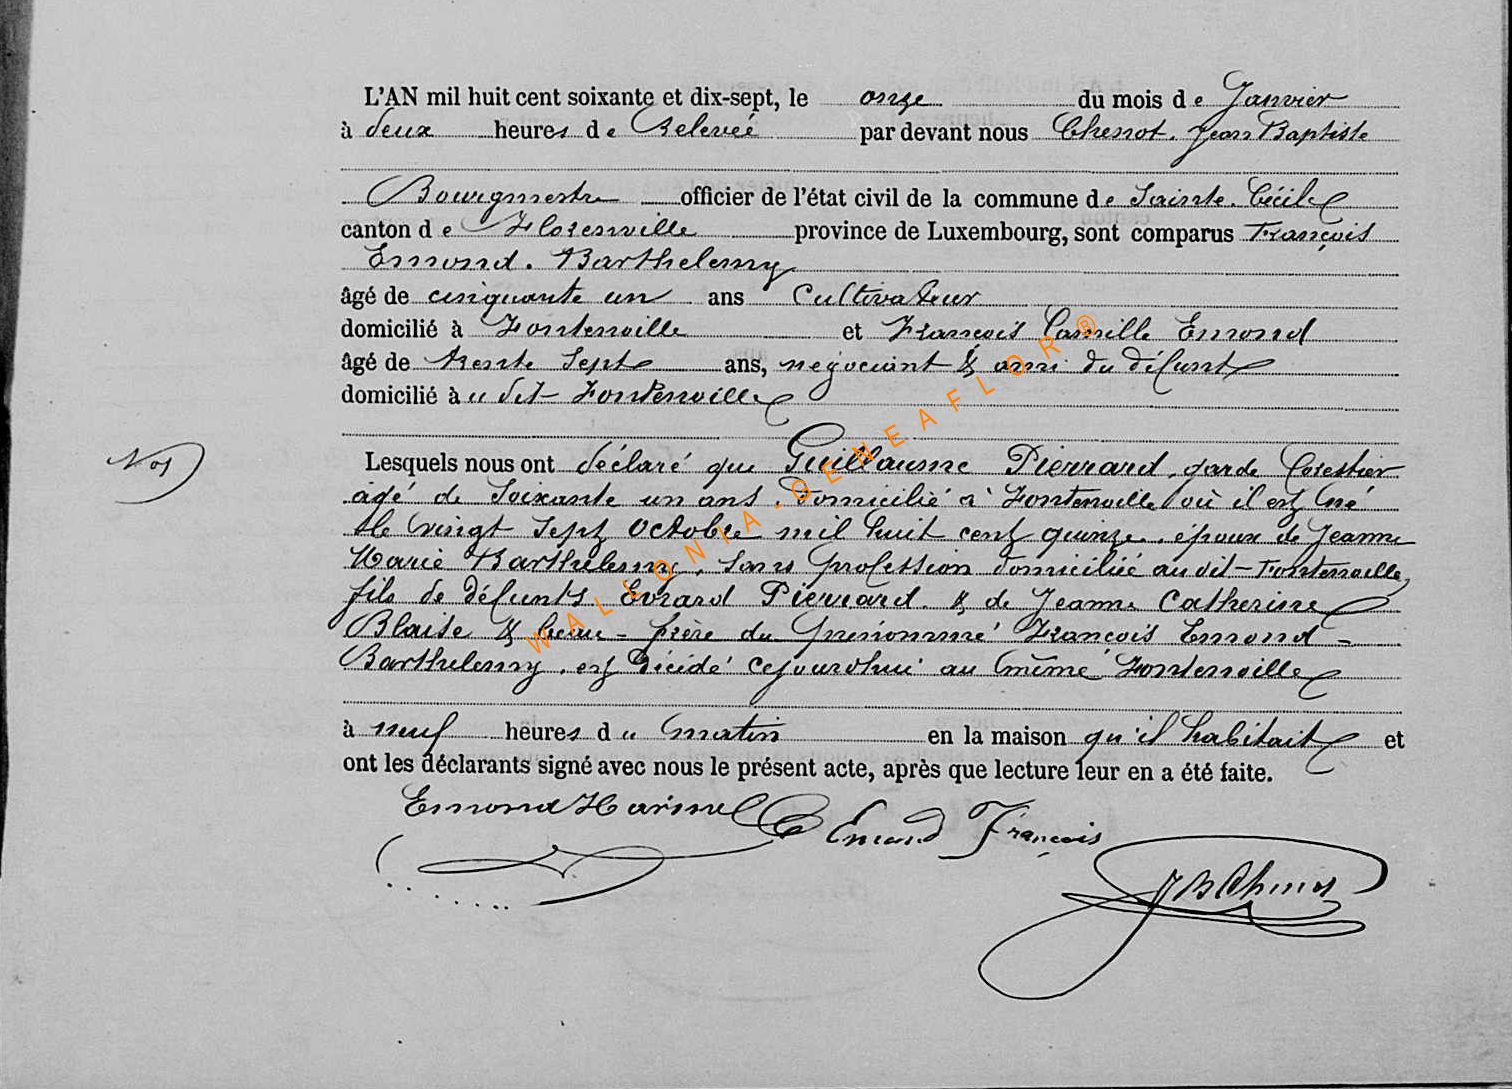 L'AN mil huit cent soixante et dix-sept, le onze du mois de Janvier
à deux heures de Relevée par devant nous Chenot. Jean Baptiste
Bourgmestre officier de l'état civil de la commune de Sainte. Cécile
canton de Florenville province de Luxembourg, sont comparus François
Emond. Barthelemy
âgé de cinquante un ans Cultivateur
domicilié à Fontenoille et François Camille Emond
âgé de trente Sept ans, négociant & ami du défunt
domicilié à u dit Fontenoille
N° 1
Lesquels nous ont déclaré que Guillaume Pierrard, garde forestier
agé de Soixante un ans. Domicilié à Fontenoille où il est né
le vingt Sept Octobre mil huit cent quinze. époux de Jeanne
Marie Barthelemy, Sans profession domiciliée au dit Fontenoille,
fils de défunts Evrard Pierrard. & de Jeanne Catherine
Blaise & beau-frère du prénommé François Emond-
Barthelemy. est décédé cejourdhui au même Fontenoille
à neuf heures du matin en la maison qu'il habitait et
ont les déclarants signé avec nous le présent acte, après que lecture leur en a été faite.
Emond François
JB Chenot
WALLONIA-GENEAFLOR®